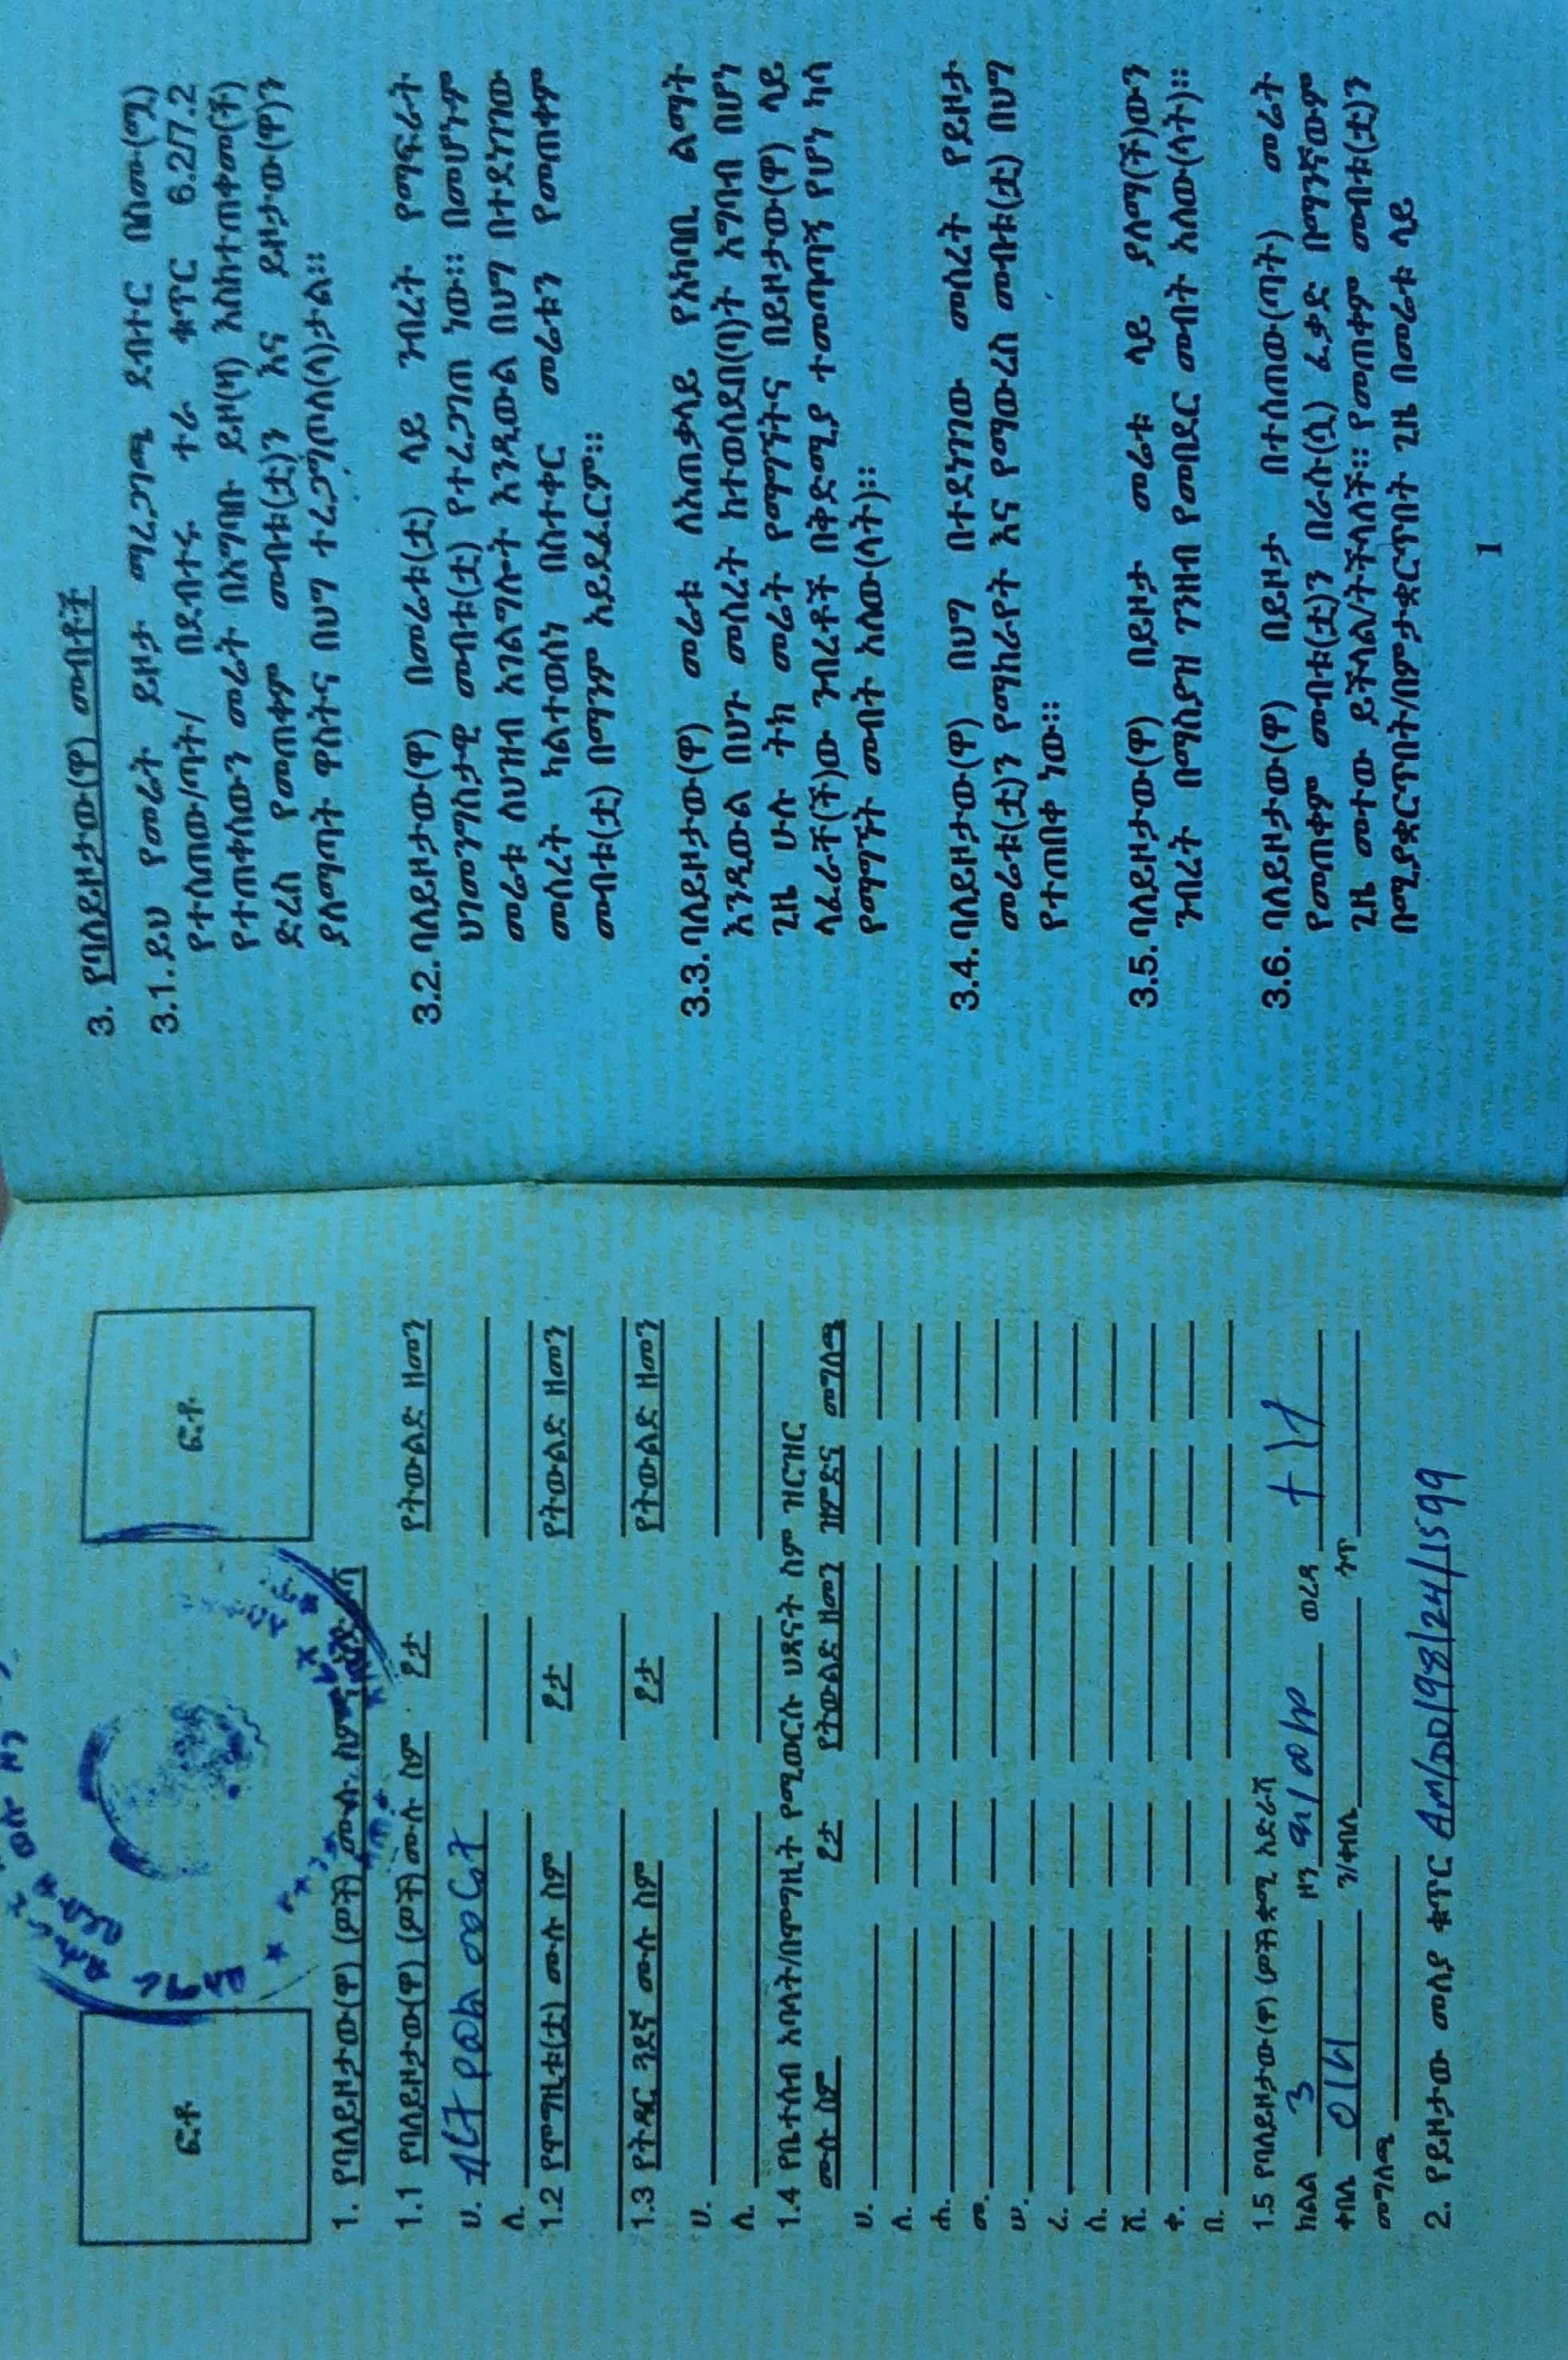 ፎቶ
ፎቶ
1. የባለይዞታው(ዋ) (ዎች) ሙሉ ስም
1.1 የባለይዞታው(ዋ) (ዎች) ሙሉ ስም ፆታ የትውልድ ዘመን
ሀ.
ለ.
1.2 የሞግዚቱ(ቷ) ሙሉ ስም ፆታ የትውልድ ዘመን
1.3 የትዳር ጓደኛ ሙሉ ስም ፆታ የትውልድ ዘመን
ሀ.
ለ.
1.4 የቤተሰብ አባላት/በሞግዚት የሚወርሱ ህፃናት ስም ዝርዝር
ሙሉ ስም ፆታ የትውልድ ዘመን ዝምድና መግለጫ
ሀ.
ለ.
ሐ.
መ.
ሠ.
ረ.
ሰ.
ሸ.
ቀ.
በ.
1.5 የባለይዞታው(ዋ) (ዎች) ቋሚ አድራሻ
ክልል 3 ዞን ወረዳ
ቀበሌ 014 ን/ቀበሌ ጎጥ
መግለጫ
2. የይዞታው መለያ ቁጥር Am/DD/98/24/1599
3. የባለይዞታው(ዋ) መብቶች
3.1. ይህ የመሬት ይዞታ ማረጋገጫ ደብተር በስሙ(ሟ)
የተሰጠው/ጣት/ በደብተሩ ተራ ቁጥር 6.2/7.2
የተጠቀሰውን መሬት በአግባቡ ይዞ(ዛ) እስከተጠቀመ(ች)
ድረስ የመጠቀም መብቱ(ቷ)ን እና ይዞታው(ዋ)ን
ያለማጣት ዋስትና በህግ ተረጋግጦለ(ላ)ታል።
3.2. ባለይዞታው(ዋ) በመሬቱ(ቷ) ላይ ንብረት የማፍራት
ህገመንግስታዊ መብቱ(ቷ) የተረጋገጠ ነው። በመሆኑም
መሬቱ ለህዝብ አገልግሎት እንዲውል በህግ በተደነገገው
መሰረት ካልተወሰነ በስተቀር መሬቱን የመጠቀም
መብቱ(ቷ) በማንም አይደፈርም።
3.3. ባለይዞታው(ዋ) መሬቱ ለአጠቃላይ የአካባቢ ልማት
እንዲውል በህጉ መሰረት ከተወሰደበ(ባ)ት አግባብ በሆነ
ጊዜ ሁሉ ትክ መሬት የማግኘትና በይዞታው(ዋ) ላይ
ላፈራቸ(ች)ው ንብረቶች በቅድሚያ ተመጣጣኝ የሆነ ካሳ
የማግኘት መብት አለው(ላት)።
3.4. ባለይዞታው(ዋ) በህግ በተደነገገው መሰረት የይዞታ
መሬቱ(ቷ)ን የማከራየት እና የማውረስ መብቱ(ቷ) በህግ
የተጠበቀ ነው።
3.5. ባለይዞታው(ዋ) በይዞታ መሬቱ ላይ ያለማ(ች)ውን
ንብረት በማስያዝ ገንዘብ የመበደር መብት አለው(ላት)።
3.6. ባለይዞታው(ዋ) በይዞታ በተሰጠው(ጣት) መሬት
የመጠቀም መብቱ(ቷ)ን በራሱ(ሷ) ፈቃድ በማንኛውም
ጊዜ መተው ይችላል/ትችላለች። የመጠቀም መብቱ(ቷ)ን
በሚያቋርጥበት/በምታቋርጥበት ጊዜ በመሬቱ ላይ
1